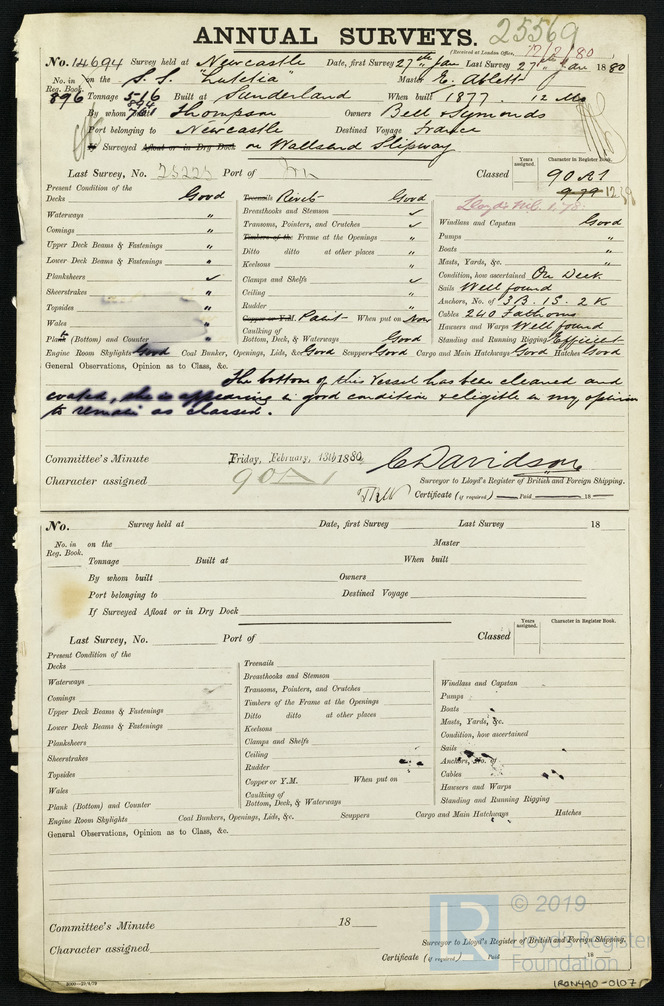 25569
ANNUAL SURVEYS.
(Received at London Office, 12/2/80
No. 14694 Survey held at Newcastle Date, first Survey 27th Jan Last Survey 27th Jan 1880
No. in Reg. Book. on the S.S. "Lutetia" Master E. Ablett
896 Tonnage 516 Built at Sunderland When built 1877. 12 Mo
By whom built Thompson Owners Bell & Symonds
Port belonging to Newcastle Destined Voyage France
If Surveyed Afloat or in Dry Dock on Wallsend Slipway
Years assigned. Character in Register Book.
Last Survey, No. 25225 Port of Classed 90 A1
9.79
Lloyd's M.C. 1.78
Present Condition of the
Decks Good Treenails Rivets Good
Waterways " Breasthooks and Stemson ✓ Windlass and Capstan Good
Comings " Transoms, Pointers, and Crutches ✓ Pumps "
Upper Deck Beams & Fastenings " Timbers of the Frame at the Openings " Boats "
Lower Deck Beams & Fastenings " Ditto ditto at other places " Masts, Yards, &c. "
Keelsons " Condition, how ascertained On Deck
Planksheers ✓ Clamps and Shelfs ✓ Sails Well found
Sheerstrakes " Ceiling " Anchors, No. of 3 B. 1 S. 2 K
Topsides " Rudder " Cables 240 Fathoms
Wales " Copper or Y.M. Paint When put on Now Hawsers and Warps Well found
Plank (Bottom) and Counter " Caulking of Bottom, Deck, & Waterways Good Standing and Running Rigging Efficient
Engine Room Skylights Good Coal Bunker, Openings, Lids, &c. Good Scuppers Good Cargo and Main Hatchways Good Hatches Good
General Observations, Opinion as to Class, &c.
The bottom of this Vessel has been cleaned and
coated, she is appearing in good condition & eligible in my opinion
to remain as classed.
Committee's Minute Friday, February, 13th 1880 C Davidson
Character assigned 90 A1 Surveyor to Lloyd's Register of British and Foreign Shipping.
Certificate (if required) Paid 18
No. Survey held at Date, first Survey Last Survey 18
No. in Reg. Book. on the Master
Tonnage Built at When built
By whom built Owners
Port belonging to Destined Voyage
If Surveyed Afloat or in Dry Dock
Years assigned. Character in Register Book.
Last Survey, No. Port of Classed
Present Condition of the
Decks Treenails
Waterways Breasthooks and Stemson Windlass and Capstan
Comings Transoms, Pointers, and Crutches Pumps
Upper Deck Beams & Fastenings Timbers of the Frame at the Openings Boats
Lower Deck Beams & Fastenings Ditto ditto at other places Masts, Yards, &c.
Keelsons Condition, how ascertained
Planksheers Clamps and Shelfs Sails
Sheerstrakes Ceiling Anchors, No. of
Topsides Rudder Cables
Wales Copper or Y.M. When put on Hawsers and Warps
Plank (Bottom) and Counter Caulking of Bottom, Deck, & Waterways Standing and Running Rigging
Engine Room Skylights Coal Bunkers, Openings, Lids, &c. Scuppers Cargo and Main Hatchways Hatches
General Observations, Opinion as to Class, &c.
Committee's Minute 18
Character assigned Surveyor to Lloyd's Register of British and Foreign Shipping.
Certificate (if required) Paid 18
LR © 2019
Lloyd's Register
Foundation
IRON490-0107